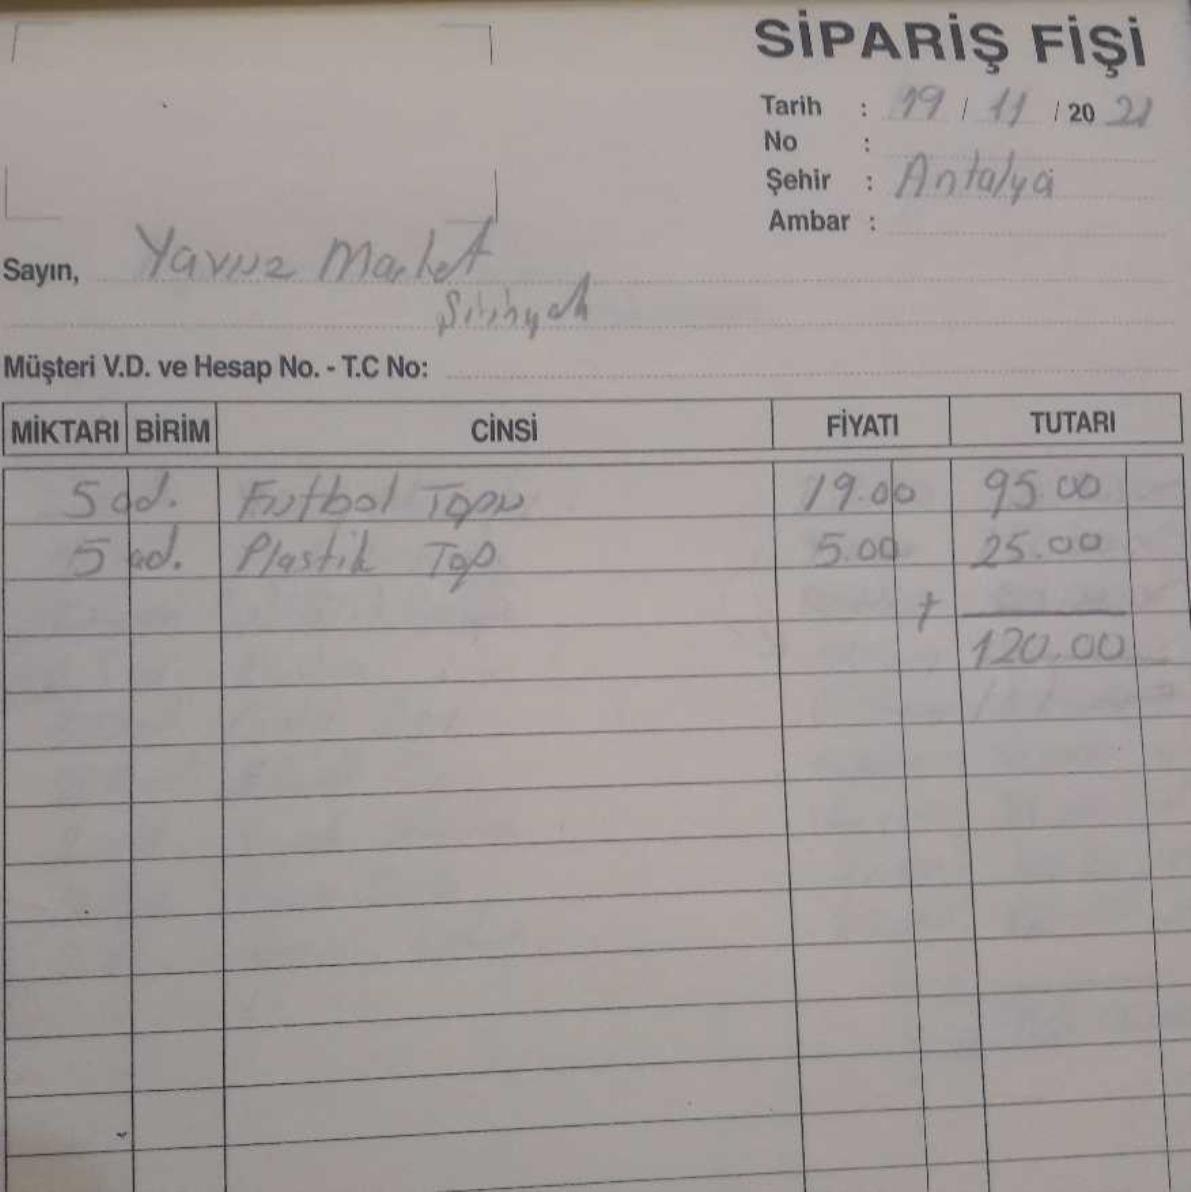 SİPARİŞ FİŞİ
Tarih : 19 / 11 / 20 21
No :
Şehir : Antalya
Ambar :
Sayın, Yavuz Market
Şirinyalı
Müşteri V.D. ve Hesap No. - T.C No:
MİKTARI BİRİM CİNSİ FİYATI TUTARI
5 ad. Futbol Topu 19.00 95.00
5 ad. Plastik Top 5.00 25.00
+
120.00